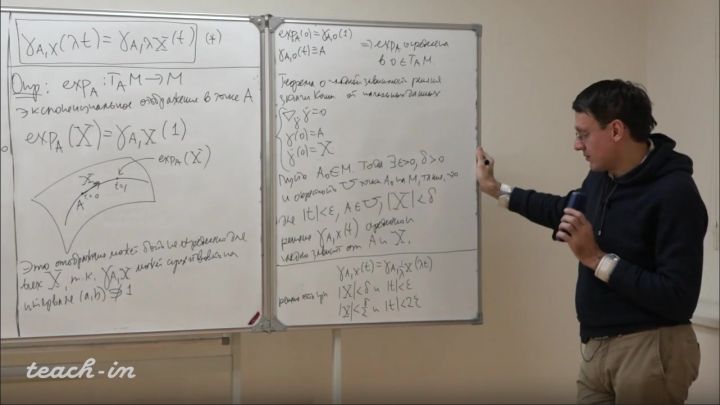 γ_{A,X}(λt) = γ_{A,λX}(t) (*)
Опр: exp_A : T_A M → M
экспоненциальное отображение в точке A
exp_A(X) = γ_{A,X}(1)
exp_A(X)
X
t=0
t=1
A
Это отображение может быть не определено для
всех X, т.к. γ_{A,X} может существовать на
интервале (a,b) ∌ 1
exp_A(0) = γ_{A,0}(1)
γ_{A,0}(t) ≡ A ⇒ exp_A определена
в 0 ∈ T_A M
Теорема о гладкой зависимости решения
задачи Коши от начальных данных
∇_γ̇ γ̇ = 0
γ(0) = A
γ̇(0) = X
Пусть A_0 ∈ M. Тогда ∃ ε>0, δ>0
и окрестность U точки A_0 на M, такие, что
для |t|<ε, A ∈ U, |X|<δ
решение γ_{A,X}(t) определено и
гладко зависит от A и X.
γ_{A,X}(t) = γ_{A,X}(λt)
|X|<δ и |t|<ε
|X|<δ/2 и |t|<2ε
teach-in